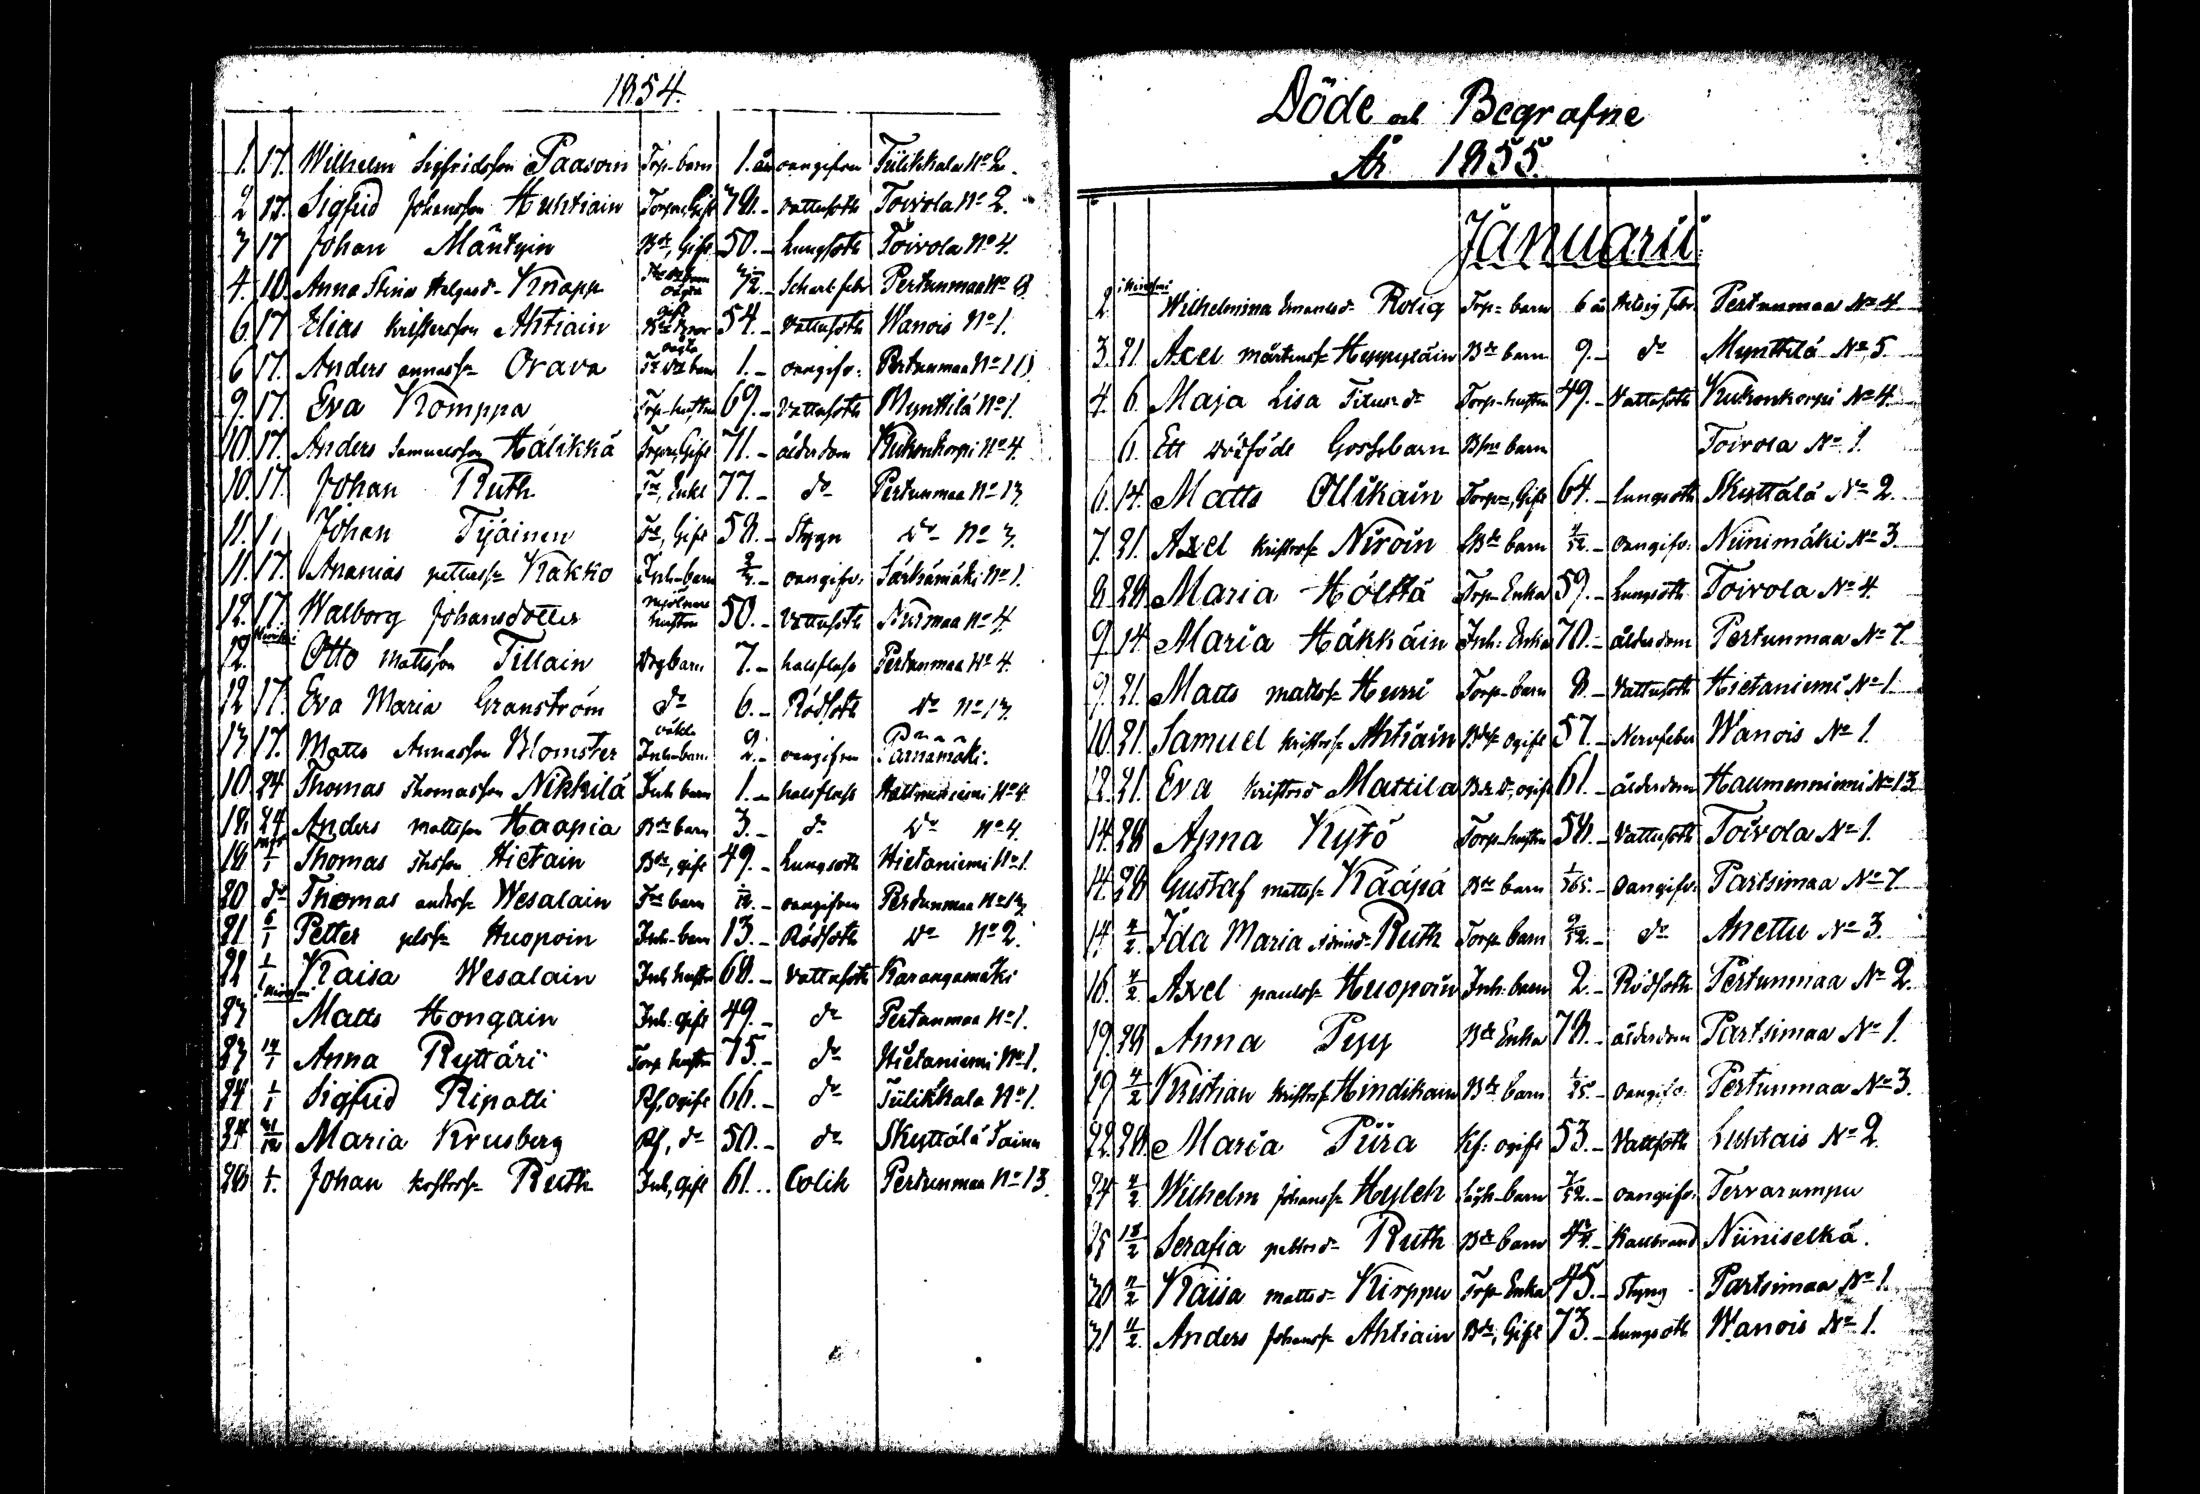 1854.
1. 17. Wilhelm Sigfridsson Paasoin Torp. barn 1. år oangifven Tiilikkala No 2.
2 17. Sigfrid Johansson Huhtiain Torpare, Gift 78. - Vattusoth Toivola No 2.
3 17 Johan Mäntyin Bde, Gift 50. - Lungsoth Toivola No 4.
4. 10. Anna Stina Helgasdr Knapp oägta Pertunmaa No 8.
6 17 Elias Kristersson Ahtiain 54. - Vattusoth Wanois No 1.
6 17. Anders annassn Orava oägta barn 1. - oangifv: Pertunmaa No 11
9. 17. Eva Komppa Torp-hustru 69. - Vattusoth Mynttilä No 1.
10. 17. Anders Samuelsson Hälikkä Torpare, Gift 71. - ålderdom Kuhonkorpi No 4.
10. 17. Johan Ruth Enkl 77. - do Pertunmaa No 13
11. Johan Tyäinen Gift 58. - Stygn do No 3.
11. 17. Ananias pettersn Kakko Inh-barn oangifv: Särkämäki No 1.
12. 17. Walborg Johansdotter mjölnare hustru 50. - Vattusoth No 4.
12. Otto Mattsson Tillain barn 7. - halsfluss Pertunmaa No 4.
12 17. Eva Maria Granström do 6. - Rödsoth do No 13.
13 17. Matts Annasson Blomster oäkta Inh-barn 2. - oangifven Pärnämäki.
10 24 Thomas Thomasson Nikkilä Inh barn 1. - halsfluss No 4
18 24 Anders Mattsson Haapia Bde barn 3. - do do No 4.
18 Thomas Thsson Hietain Bde, gift 49. - Lungsoth Hietaniemi No 1.
20 do Thomas anderssn Wesalain barn oangifven Pertunmaa No 13
21 6/1 Petter Huopoin Inh-barn 13. - Rödsoth do No 2.
22 1/1 Kaisa Wesalain Inh hustru 68. - Vattusoth Karangamäki
23 Matts Hongain Inh: gift 49. - do Pertunmaa No 1.
23 14/1 Anna Ryttäri Torp hustru 75. - do Hietaniemi No 1.
24 1/1 Sigfrid Ripatti Rf, ogift 66. - do Tiilikkala No 1.
24 31/12 Maria Krusberg Rf, do 50. - do Skyttälä
28 1/1. Johan Ruth Inh, gift 61... Colik Pertunmaa No 13.
Döde och Begrafne
År 1855.
Januarii
2. Wilhelmina Emanelsdr Rolig Torp- barn 6 år Hetsig feber Pertunmaa No 4.
3. 21. Axel Mårtenssn Heppyläin Bde barn 9. - do Mynttilä No 5.
4. 6. Maja Lisa Titusdr Torp-hustru 49. - Vattusoth Kuhonkorpi No 4.
6. Ett dödföde Gossebarn barn Toivola No 1.
6. 14. Matts Ollikain Torpre, Gift 64. - lungsoth Skyttälä No 2.
7. 21. Axel Kristerssn Niroin Bde barn oangifv: Niinimäki No 3.
8 28 Maria Hölttä Torp-Enka 59. - Lungsoth Toivola No 4.
9 14 Maria Häkkäin Inh: Enka 70. - ålderdom Pertunmaa No 7.
9. 21. Matts mattssn Hurri Torp-barn 8. - Vattusoth Hietaniemi No 1.
10. 21. Samuel Kristerssn Ahtiain ogift 57. - Nervfeber Wanois No 1.
12. 21. Eva Kristersd Mattila ogift 61. - ålderdom Haumenniemi No 13
14. 28 Anna Kytö Torp-hustru 58. - Vattusoth Toivola No 1.
14. 28 Gustaf mattssn Kääpä Bde barn 1/365. - oangifv: Partsimaa No 7.
14. 4/2 Ida Maria Ruth Torp barn 2/52. - do Anettu No 3.
16. 4/2 Axel paulssn Huopoin Inh: barn 2. - Rödsoth Pertunmaa No 2.
19. 28 Anna Pyy Bde Enka 78. - ålderdom Partsimaa No 1.
19 4/2 Kristian Kristerssn Hindikain Bde barn oangifv: Pertunmaa No 3.
22. 28 Maria Piira ogift 53. - Vattsoth Luhtais No 2.
24 4/2 Wilhelm Johanssn Heyleh barn oangifv: Tervarumpu
25 18/2 Serafia pettersdr Ruth Bde barn Kallbrand Niiniselkä.
30 4/2 Kaisa mattsdr Kirppu Torp Enka 45. - Styng Partsimaa No 1.
31 11/2 Anders Johanssn Ahtiain Bde, Gift 73. - Lungsoth Wanois No 1.